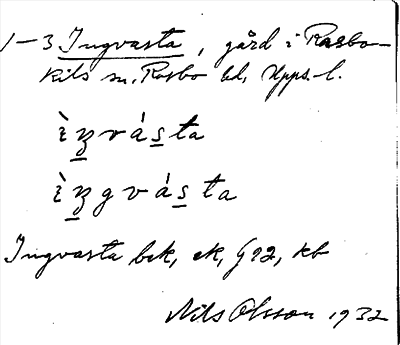 1-3 Ingvasta, gård i Rasbo-
kils sn. Rasbo hd, Upps. l.
ìŋvásta
ìŋgvásta
Ingvasta bek, ek, G92, kb
Nils Olsson 1932